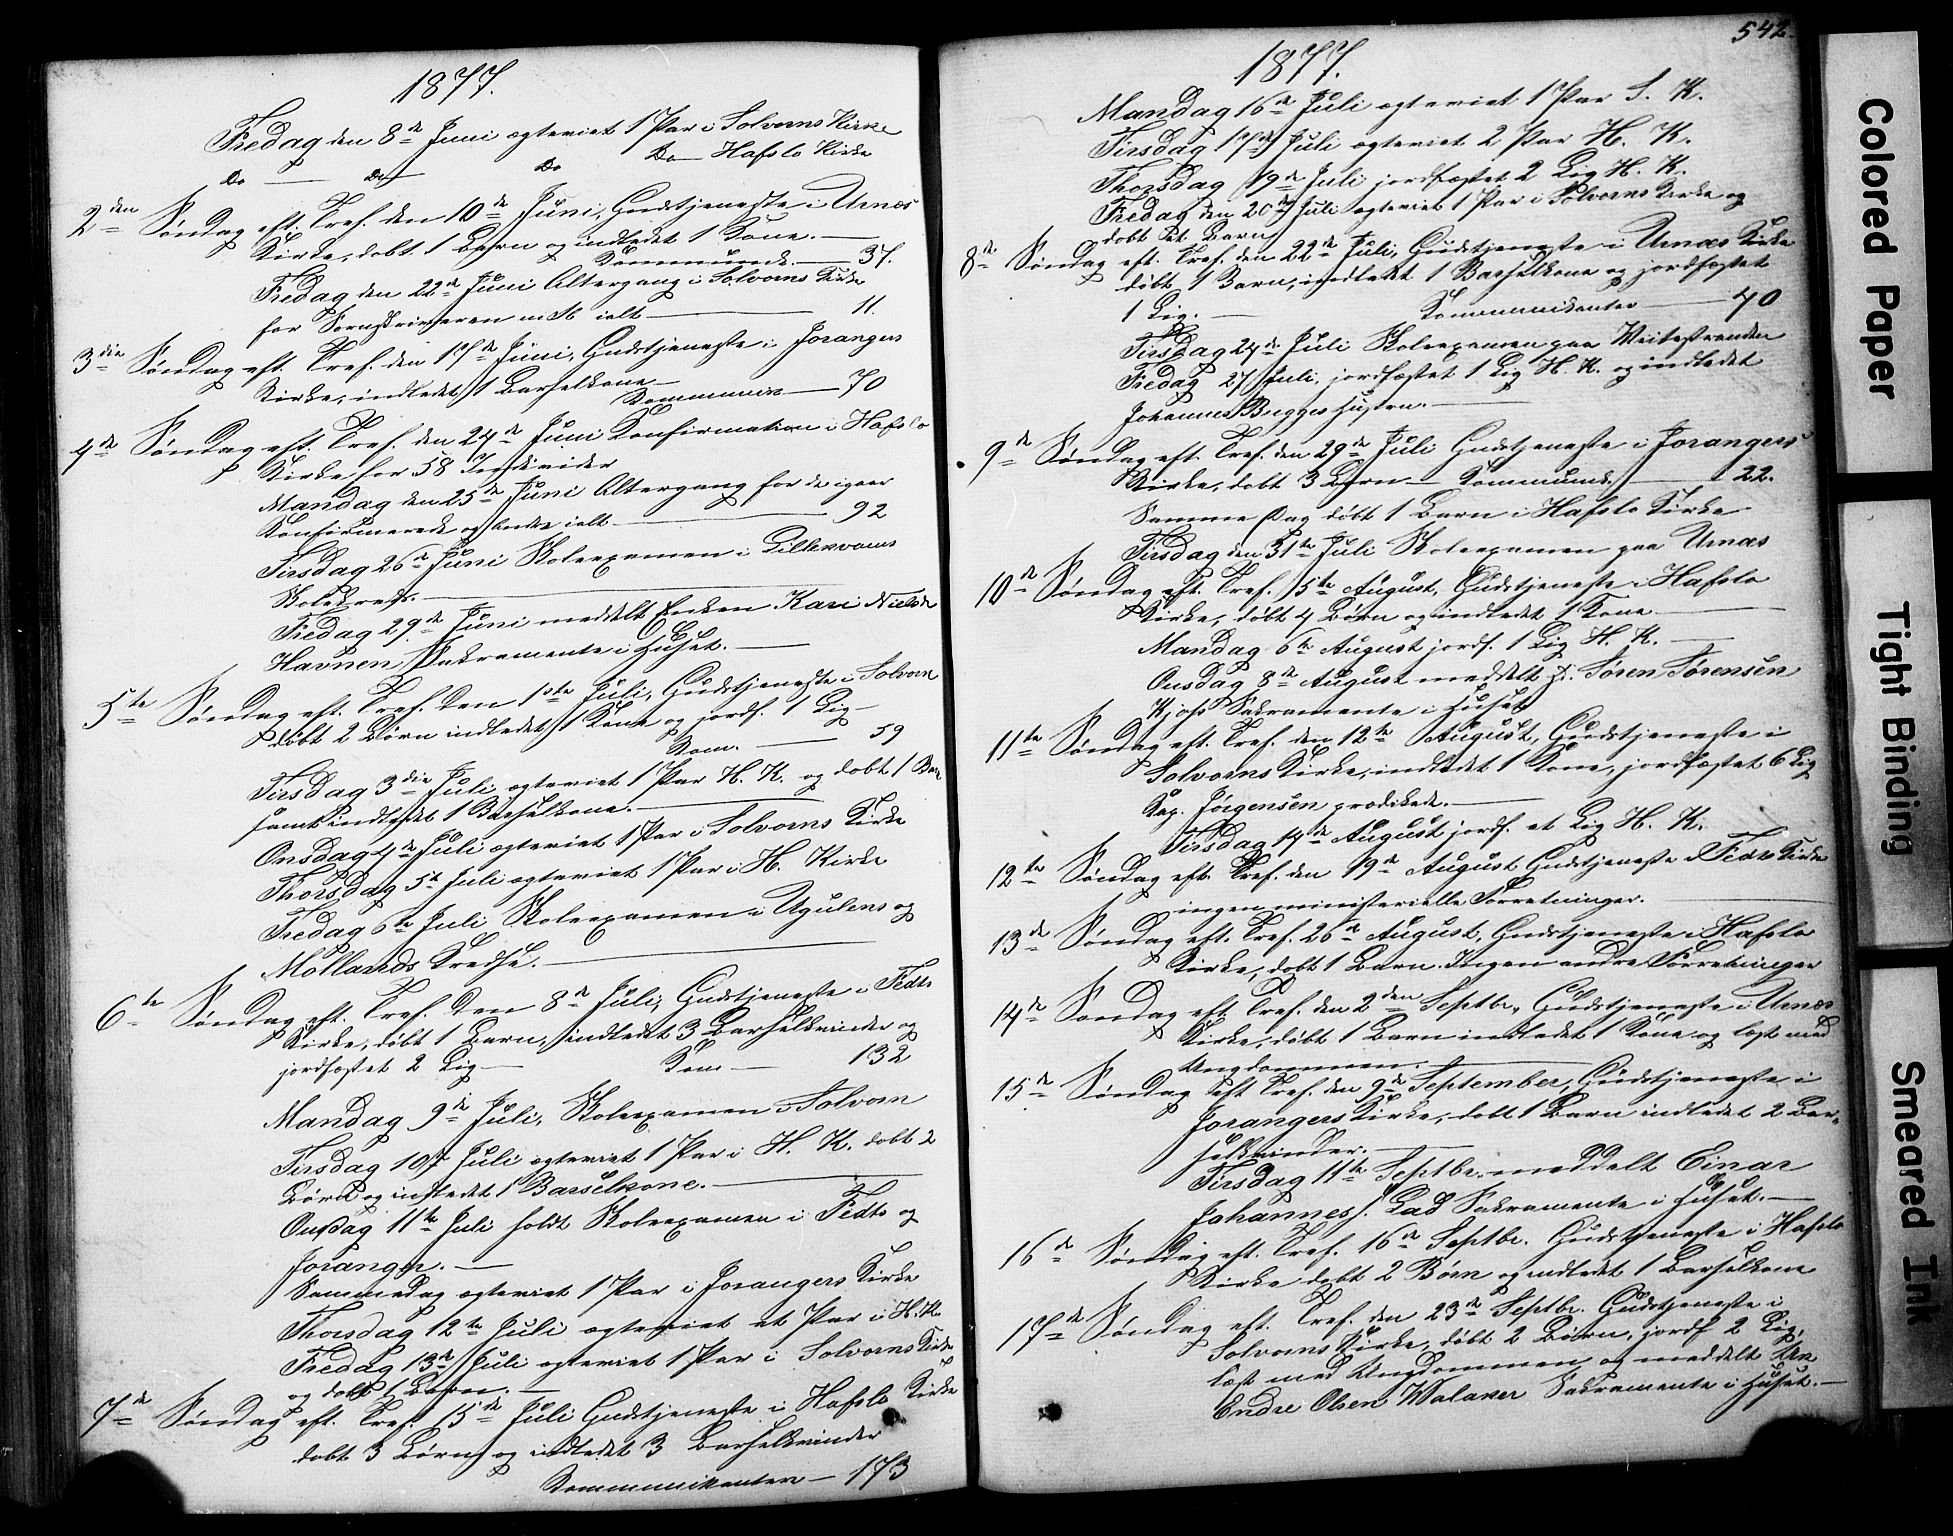 1877.
Fredag den 8de Juni egteviet 1 Par i Solvorns Kirke
Do — Do — Do Do — Hafslo Kirke
2den Søndag eft. Tref. den 10de Juni, Gudstjeneste i Urnes
Kirke, døbt 1 Barn og indledet 1 Kone. —
Kommunik. — 37.
Fredag den 22de Juni Altergang i Solvorns Kirke
for Sorenskriveren m. fl. ialt — 11.
3die Søndag eft. Tref. den 17de Juni, Gudstjeneste i Joranger
Kirke, indledet 1 Barselkone —
Kommunik — 70
4de Søndag eft. Tref. den 24de Juni Konfirmation i Hafslo
Kirke for 58 Individer
Mandag den 25de Juni Altergang for de igaar
Konfirmerede og andre ialt — 92
Tirsdag 26de Juni Skoleexamen i
Skolekreds. —
Fredag 29de Juni meddelt Enken Kari Nielsdr
Havnen Sakramente i Huset. —
5te Søndag eft. Tref. den 1ste Juli, Gudstjeneste i Solvorn
døbt 2 Børn indledet 1 Kone og jordf. 1 Lig —
Kom. — 59
Tirsdag 3die Juli egteviet 1 Par H. K. og døbt 1 Barn
samt indledet 1 Barselkone. —
Onsdag 4de Juli egteviet 1 Par i Solvorns Kirke
Thorsdag 5te Juli egteviet 1 Par i H. Kirke
Fredag 6te Juli Skoleexamen i Ugulens og
Mollands Kredse. —
6te Søndag eft. Tref. den 8de Juli, Gudstjeneste i Fedts
Kirke, døbt 1 Barn, indledet 3 Barselkvinder og
jordfæstet 2 Lig — Kom — 132
Mandag 9de Juli, Skoleexamen i Solvorn
Tirsdag 10de Juli egteviet 1 Par i H. K. døbt 2
Børn og indledet 1 Barselkone. —
Onsdag 11te Juli holdt Skoleexamen i Fedts og
Joranger. —
Samme dag egteviet 1 Par i Jorangers Kirke
Thorsdag 12te Juli egteviet et Par i H. K.
Fredag 13de Juli egteviet 1 Par i Solvorns Kirke
og døbt 1 Barn. —
7de Søndag eft. Tref. 15de Juli Gudstjeneste i Hafslo Kirke
døbt 3 Børn og indledet 3 Barselkvinder
Kommunikanter — 173
542.
1877.
Mandag 16de Juli egteviet 1 Par S. K.
Tirsdag 17de Juli egteviet 2 Par H. K.
Thorsdag 19de Juli jordfæstet 2 Lig H. K.
Fredag den 20de Juli egteviet 1 Par i Solvorns Kirke og
døbt et Barn
8de Søndag eft. Tref. den 22de Juli, Gudstjeneste i Urnæs Kirke
døbt 1 Barn, indledet 1 Barselkone og jordfæstet
1 Lig. — Kommunikanter — 40
Tirsdag 24de Juli Skoleexamen paa Veitestranden
Fredag 27 Juli, jordfæstet 1 Lig H. K. og indledet
Johannes Bugges Hustru. —
9de Søndag eft. Tref. den 29de Juli Gudstjeneste i Jorangers
Kirke, døbt 3 Børn — Kommunik. — 22.
Samme Dag døbt 1 Barn i Hafslo Kirke
Tirsdag den 31te Juli Skoleexamen paa Urnæs
10de Søndag eft. Tref. 5te August, Gudstjeneste i Hafslo
Kirke, døbt 4 Børn og indledet 1 Kone —
Mandag 6te August jordf. 1 Lig H. K. —
Onsdag 8de August meddelt Søren Sørensen
Sakramente i Huset
11te Søndag eft. Tref. den 12te August, Gudstjeneste i
Solvorns Kirke, indledet 1 Kone, jordfæstet 6 Lig
Kap. Jørgensen prædikede. —
Tirsdag 14de August jordf. et Lig H. K.
12te Søndag eft. Tref. den 19de August Gudstjeneste i Fedts Kirke
ingen ministerielle Forretninger. —
13de Søndag eft. Tref. 26de August, Gudstjeneste i Hafslo
Kirke, døbt 1 Barn. Ingen andre Forretninger
14de Søndag eft. Tref. den 2den Septbr., Gudstjeneste i Urnæs
Kirke, døbt 1 Barn indledet 1 Kone og læst med
Ungdommen. —
15de Søndag eft. Tref. den 9de September, Gudstjeneste i
Jorangers Kirke, døbt 1 Barn indledet 2 Bar-
selkvinder. —
Tirsdag 11te Septbr. meddelt Einar
Johannes. Lad Sakramente i Huset. —
16de Søndag eft. Tref. 16de Septbr. Gudstjeneste i Hafslo
Kirke døbt 2 Børn og indledet 1 Barselkone
17de Søndag eft. Tref. den 23de Septbr. Gudstjeneste i
Solvorns Kirke, døbt 2 Børn, jordf 2 Lig,
læst med Ungdommen og meddelt
Endre Olsen Walaker Sakramente i Huset. —
Colored Paper
Tight Binding
Smeared Ink